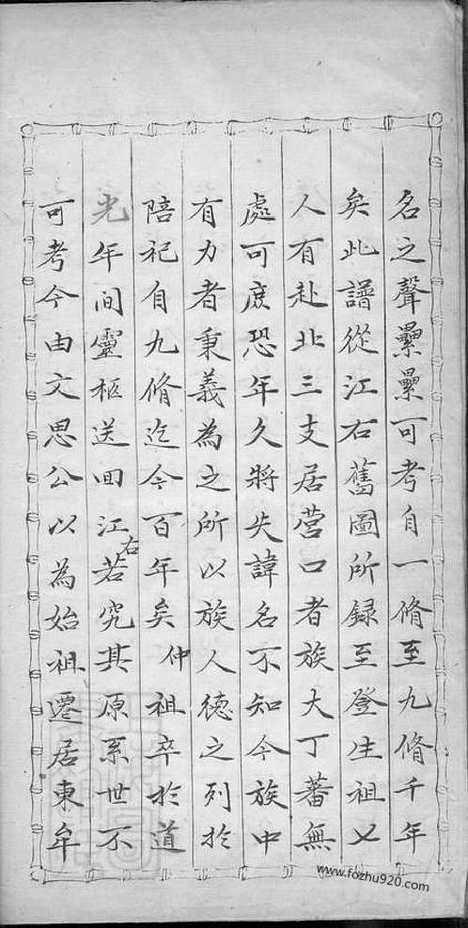 名之聲纍纍可考自一脩至九脩千年
矣此譜從江右舊圖所錄至登生祖乂
人有赴北三支居營口者族大丁蕃無
處可庋恐年久將失諱名不知今族中
有力者秉義為之所以族人德之列於
陪祀自九脩迄今百年矣仲祖卒於道
光年間靈柩送回江右若究其原系世不
可考今由文思公以為始祖遷居東牟
www.fozhu920.com